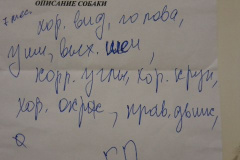 ОПИСАНИЕ СОБАКИ
7 мес.
хор. вид, голова,
уши, вых. шеи,
корр. углы, хор. круп,
хор. окрас, прав. движ,